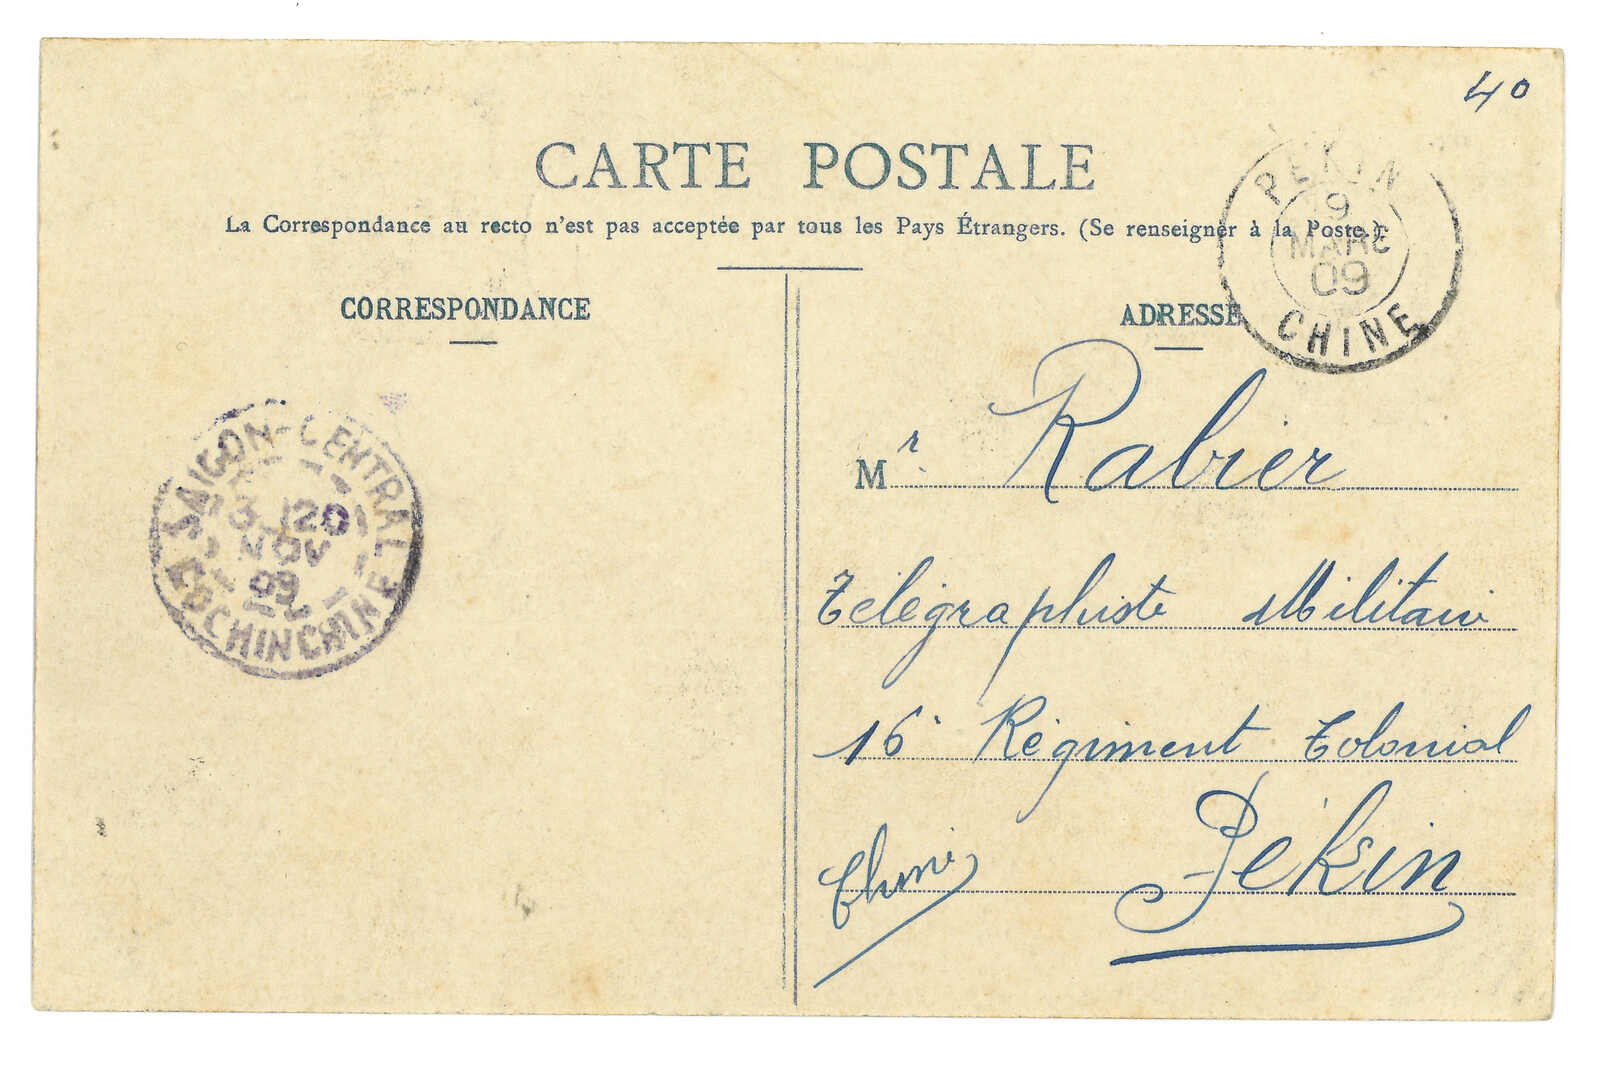 40
CARTE POSTALE
La Correspondance au recto n'est pas acceptée par tous les Pays Étrangers. (Se renseigner à la Poste.)
CORRESPONDANCE
ADRESSE
PEKIN
9
MARS
09
CHINE
SAIGON-CENTRAL
NOV
09
COCHINCHINE
Mr Rabier
Télégraphiste Militaire
16e Régiment Colonial
Pékin
Chine